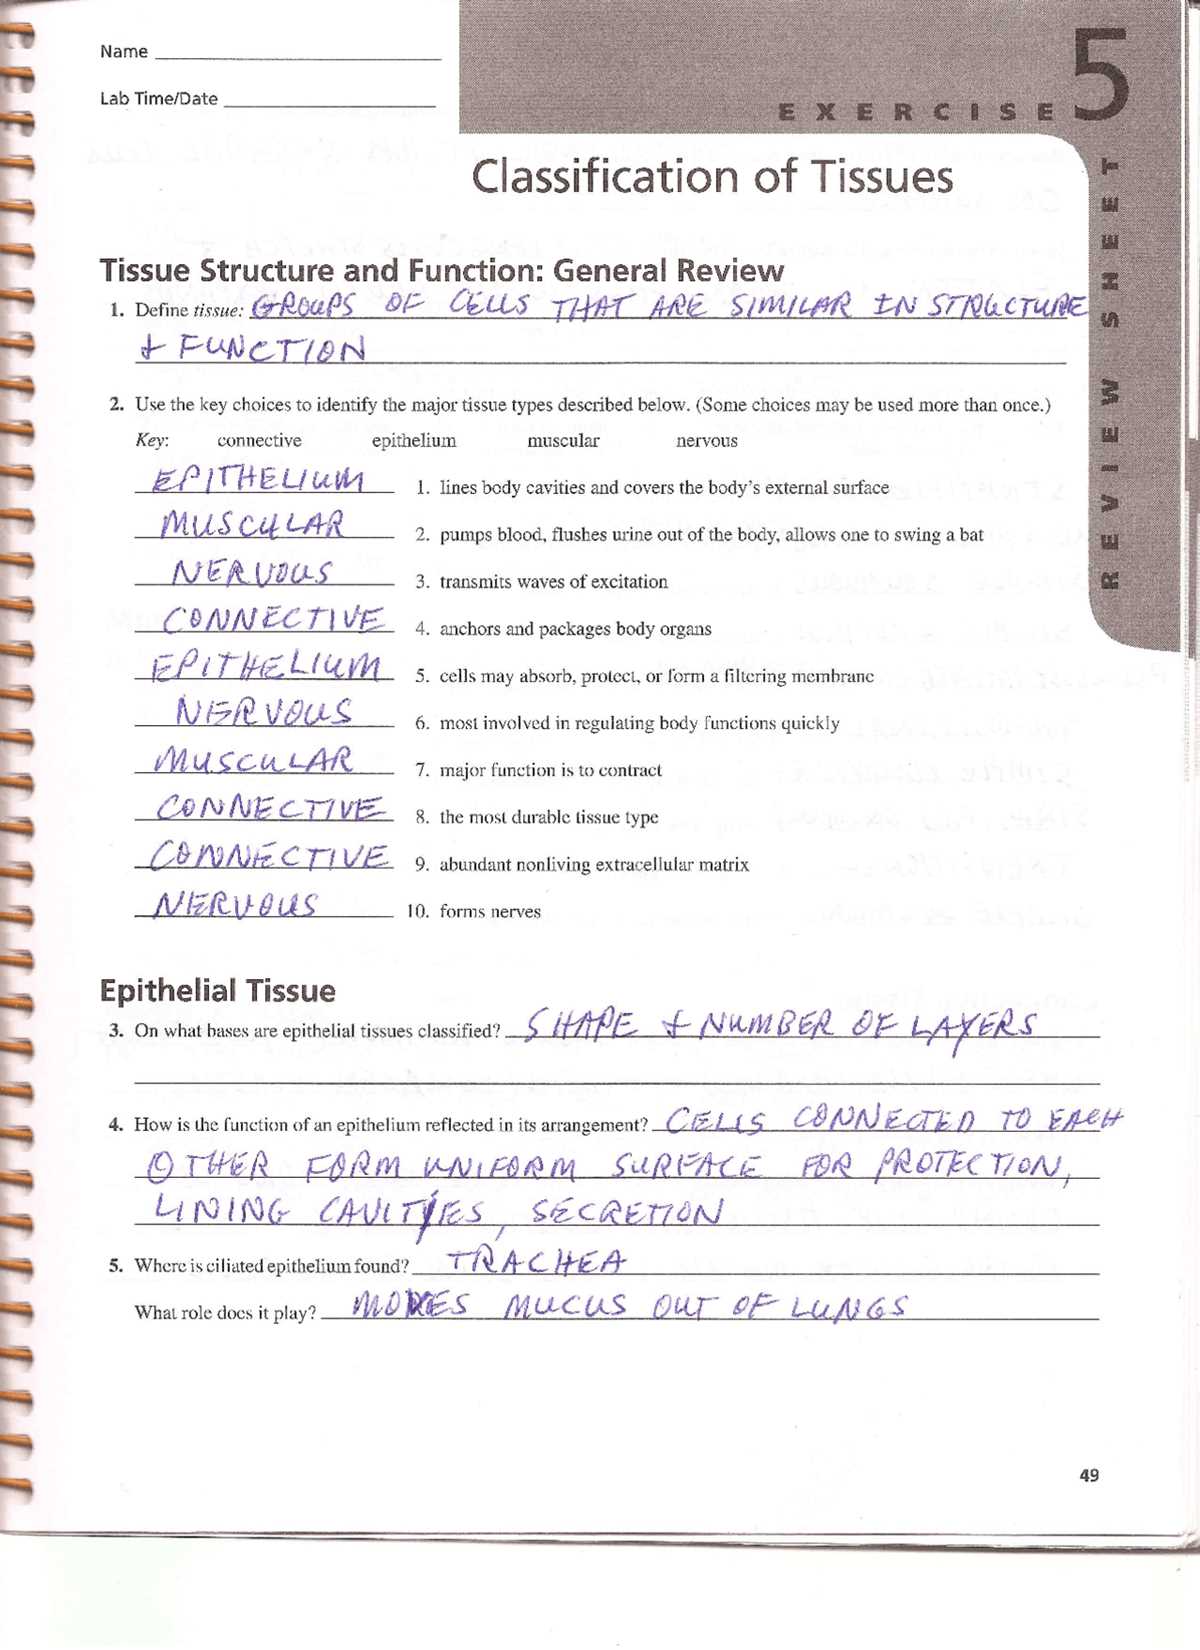 Name
Lab Time/Date
EXERCISE 5
REVIEW SHEET
Classification of Tissues
Tissue Structure and Function: General Review
1. Define tissue: GROUPS OF CELLS THAT ARE SIMILAR IN STRUCTURE
+ FUNCTION
2. Use the key choices to identify the major tissue types described below. (Some choices may be used more than once.)
Key: connective epithelium muscular nervous
EPITHELIUM 1. lines body cavities and covers the body's external surface
MUSCULAR 2. pumps blood, flushes urine out of the body, allows one to swing a bat
NERVOUS 3. transmits waves of excitation
CONNECTIVE 4. anchors and packages body organs
EPITHELIUM 5. cells may absorb, protect, or form a filtering membrane
NERVOUS 6. most involved in regulating body functions quickly
MUSCULAR 7. major function is to contract
CONNECTIVE 8. the most durable tissue type
CONNECTIVE 9. abundant nonliving extracellular matrix
NERVOUS 10. forms nerves
Epithelial Tissue
3. On what bases are epithelial tissues classified? SHAPE + NUMBER OF LAYERS
4. How is the function of an epithelium reflected in its arrangement? CELLS CONNECTED TO EACH
OTHER FORM UNIFORM SURFACE FOR PROTECTION,
LINING CAVITIES, SECRETION
5. Where is ciliated epithelium found? TRACHEA
What role does it play? MOVES MUCUS OUT OF LUNGS
49